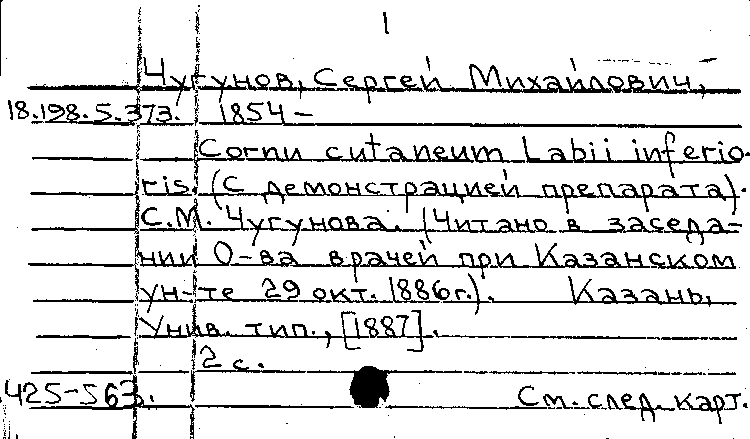 1
Чугунов, Сергей Михайлович,
18.198.5.373. 1854 –
Cornu cutaneum Labii inferio-
ris. (С демонстрацией препарата).
С.М. Чугунова. (Читано в заседа-
нии О-ва врачей при Казанском
ун-те 29 окт. 1886г.). Казань,
Унив. тип., [1887].
2 с.
425-563. См. след. карт.